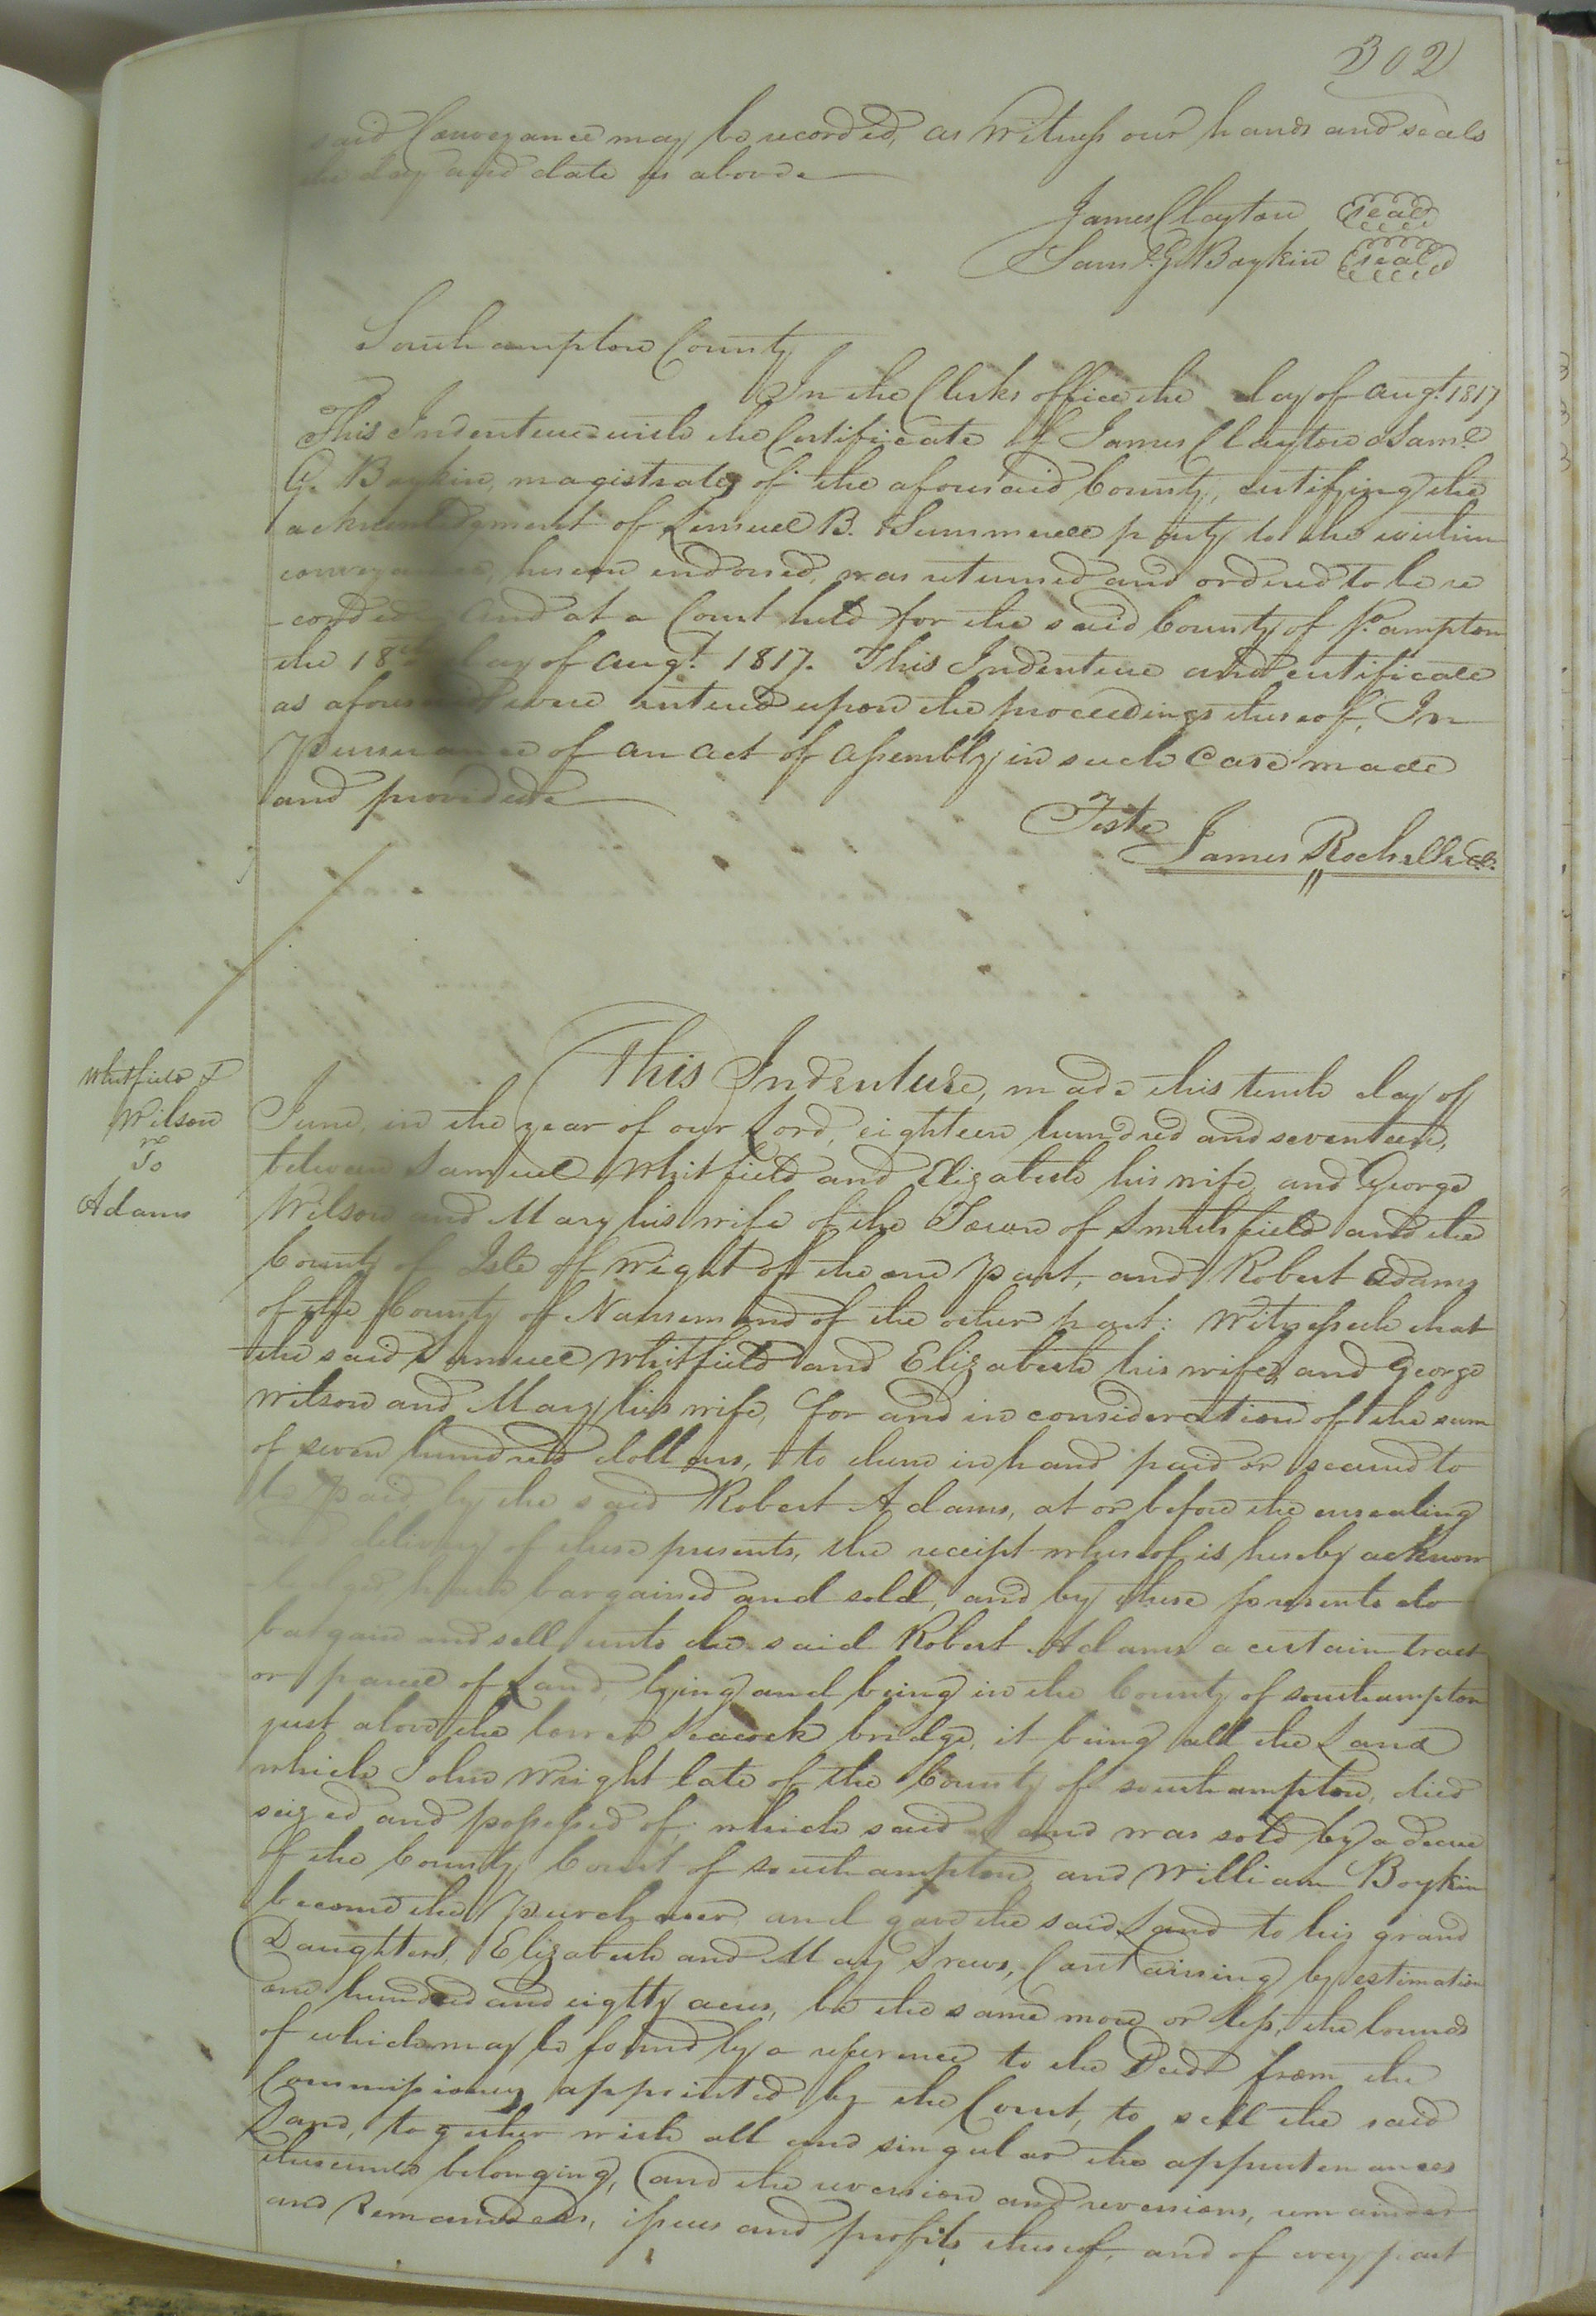 302
said Conveyance may be recorded, as Witness our hands and seals
the day and date as above
James Clayton seal
Saml. G. Boykin seal
Southampton County
In the Clerks office the day of augt. 1817
This Indenture with the Certificate of James Clayton & Saml.
G. Boykin, magistrates of the aforesaid County, certifying the
acknowledgment of Lemuel B. Summerell party to the within
conveyance, hereon endorsed, was returned and ordered to be re
-corded and at a Court held for the said County of So.ampton
the 18th day of augt. 1817. This Indenture and certificate
as aforesaid were entered upon the proceedings thereof, In
Pursuance of an act of assembly in such Case made
and provided
Teste
James Rochelle C.
Whitfield &
Wilson
To
Adams
This Indenture, made this tenth day of
June, in the year of our Lord, eighteen hundred and seventeen,
between Samuel Whitfield and Elizabeth his wife, and George
Wilson and Mary his wife of the Town of Smithfield and the
County of Isle of Wight of the one part, and Robert Adams
of the County of Nansemond of the other part: Witnesseth that
the said Samuel Whitfield and Elizabeth his wife, and George
Wilson and Mary his wife, for and in consideration of the sum
of seven hundred dollars, to them in hand paid or secured to
be paid, by the said Robert Adams, at or before the ensealing
and delivery of these presents, the receipt whereof is hereby acknow
-ledged, have bargained and sold, and by these presents do
bargain and sell unto the said Robert Adams a certain tract
or parcel of Land, lying and being in the County of southampton
just above the lower Seacock bridge, it being all the Land
which John Wright late of the County of southampton, died
seized and possessed of; which said Land was sold by a decree
of the County Court of southampton and William Boykin
become the Purchaser and gave the said Land to his grand
Daughters, Elizabeth and Mary Drews, Containing by estimation
one hundred and eighty acres, be the same more or less, the bounds
of which may be found by a reference to the Deed from the
Commissioners appointed by the Court, to sell the said
Land, together with all and singular the appurtenances
thereunto belonging, and the reversion and reversions, remainder
and Remainders, issues and profits thereof, and of every part